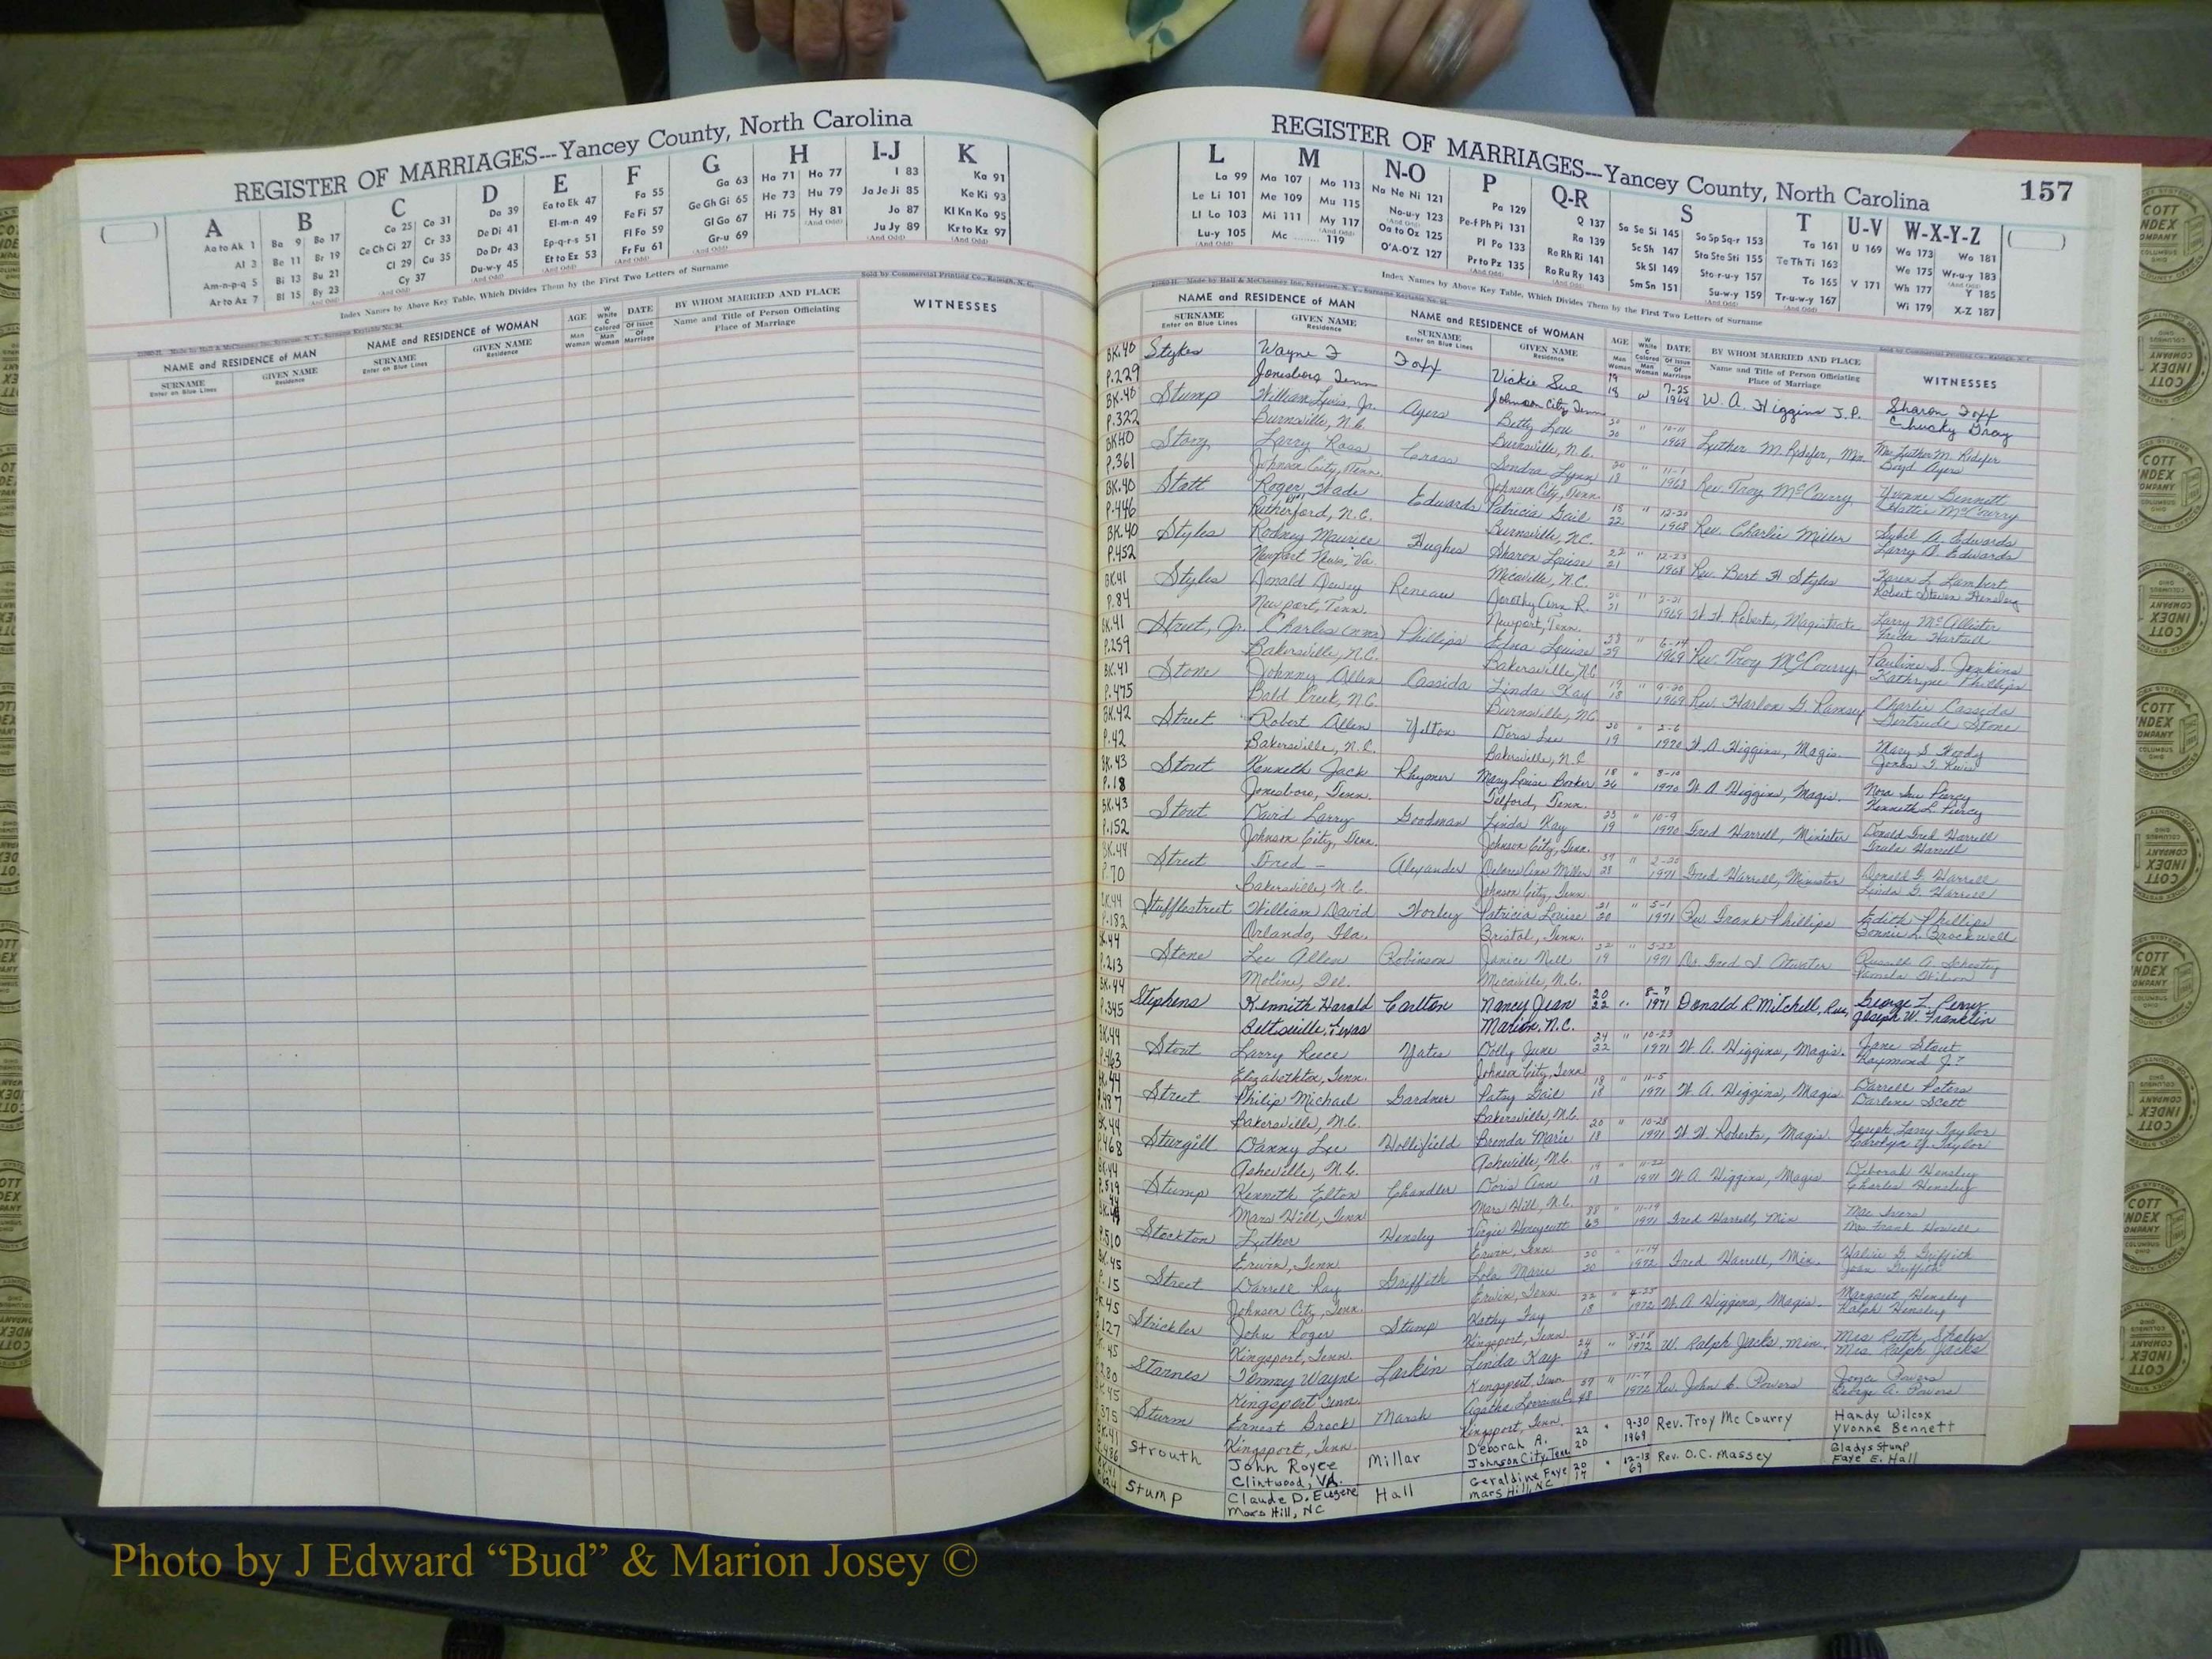 REGISTER OF MARRIAGES---Yancey County, North Carolina
A B C D E F G H I-J K
Aa to Ak 1 Ba 9 Bo 17 Ca 25 Co 31 Da 39 Ea to Ek 47 Fa 55 Ga 63 Ha 71 Ho 77 I 83 Ka 91
Al 3 Be 11 Br 19 Ce Ch Ci 27 Cr 33 De Di 41 El-m-n 49 Fe Fi 57 Ge Gh Gi 65 He 73 Hu 79 Ja Je Ji 85 Ke Ki 93
Am-n-p-q 5 Bi 13 Bu 21 Cl 29 Cu 35 Do Dr 43 Ep-q-r-s 51 Fl Fo 59 Gl Go 67 Hi 75 Hy 81 Jo 87 Kl Kn Ko 95
Ar to Az 7 Bl 15 By 23 Cy 37 Du-w-y 45 Et to Ez 53 Fr Fu 61 Gr-u 69 Ju Jy 89 Kr to Kz 97
Index Names by Above Key Table, Which Divides Them by the First Two Letters of Surname
Sold by Commercial Printing Co., Raleigh, N. C.
NAME and RESIDENCE of MAN NAME and RESIDENCE of WOMAN AGE DATE BY WHOM MARRIED AND PLACE WITNESSES
SURNAME GIVEN NAME SURNAME GIVEN NAME Name and Title of Person Officiating
Enter on Blue Lines Residence Enter on Blue Lines Residence Place of Marriage
REGISTER OF MARRIAGES---Yancey County, North Carolina 157
L M N-O P Q-R S T U-V W-X-Y-Z
La 99 Ma 107 Mo 113 Na Ne Ni 121 Pa 129 Q 137 Sa Se Si 145 So Sp Sq-r 153 Ta 161 U 169 Wa 173 Wo 181
Le Li 101 Me 109 Mu 115 No-u-y 123 Pe-f Ph Pi 131 Ra 139 Sc Sh 147 Sta Ste Sti 155 Te Th Ti 163 We 175 Wr-u-y 183
Ll Lo 103 Mi 111 My 117 Oa to Oz 125 Pl Po 133 Ra Rh Ri 141 Sk Sl 149 Sto-r-u-y 157 To 165 V 171 Wh 177 Y 185
Lu-y 105 Mc 119 O'A-O'Z 127 Pr to Pz 135 Ro Ru Ry 143 Sm Sn 151 Su-w-y 159 Tr-u-w-y 167 Wi 179 X-Z 187
Index Names by the Above Key Table, Which Divides Them by the First Two Letters of Surname
NAME and RESIDENCE OF MAN NAME and RESIDENCE OF WOMAN AGE DATE BY WHOM MARRIED AND PLACE WITNESSES
SURNAME GIVEN NAME SURNAME GIVEN NAME Name and Title of Person Officiating
Enter on Blue Lines Residence Enter on Blue Lines Residence Place of Marriage
BK.40 Stykes Wayne F Foxx Vickie Sue 19 W 7-25 W. A. Higgins J.P. Sharon Foxx
P.229 Jonesboro Tenn Johnson City, Tenn 18 1968 Chucky Gray
BK.40 Stump William Lewis, Jr. Ayers Betty Lou 20 " 10-11 Luther M. Rdifer, Min. Mrs. Luther M. Rdifer
P.322 Burnsville, N.C. Burnsville, N.C. 20 1968 Boyd Ayers
BK40 Story Larry Ross Crass Sondra Lynn 20 " 11-1 Rev. Troy McCourry Yvonne Bennett
P.361 Johnson City, Tenn. Johnson City, Tenn. 18 1968 Hattie McCourry
BK.40 Stott Roger Wade Edwards Patricia Gail " 12-20 Rev. Charlie Miller Sybil A. Edwards
P.446 Rutherford, N.C. Burnsville, N.C. 22 1968 Larry D. Edwards
BK.40 Styles Rodney Maurice Hughes Sharon Louise 22 " 12-23 Rev. Bert H Styles Karen L. Lambert
P.452 Newport News, Va. Micaville, N.C. 21 1968 Robert Steven Hensley
BK.41 Styles Donald Dewey Reneau Dorothy Ann R. " W. W. Roberts, Magistrate Larry McAllister
P.84 Newport, Tenn. Newport, Tenn. 21 1969
BK.41 Street, Jr. Charles (nmn) Phillips Edna Louise " 6-14 Rev. Troy McCourry Pauline S. Jenkins
P.259 Bakersville, N.C. Bakersville, N.C. 29 1969 Kathryne Phillips
BK.41 Stone Johnny Allen Cassida Linda Kay 19 " 9-20 Rev. Harlon G. Ramsey Charlie Cassida
P.475 Bald Creek, N.C. Burnsville, N.C. 18 1969 Gertrude Stone
BK.42 Street Robert Allen Yelton Doris Lee 20 " 2-6 W. A. Higgins, Magis. Mary S. Woody
P.42 Bakersville, N.C. Bakersville, N.C. 19 1970
BK.43 Stout Kenneth Jack Rhymer Mary Louise Booker 18 " 8-10 W. A. Higgins, Magis. Nora Sue Piercy
P.18 Jonesboro, Tenn. Telford, Tenn. 26 1970 Kenneth L. Piercy
BK.43 Stout David Larry Goodman Linda Kay 23 " 10-9 Fred Harrell, Minister Donald Fred Harrell
P.152 Johnson City, Tenn. Johnson City, Tenn. 19 1970 Trula Harrell
BK.44 Street Fred - Alexander Delores Ann Miller 37 " Fred Harrell, Minister Donald F. Harrell
P.70 Bakersville, N.C. Johnson City, Tenn. 28 1971 Linda G. Harrell
BK.44 Stufflestreet William David Worley Patricia Louise 21 " 5-1 Rev Frank Phillips Edith Phillips
P.182 Orlando, Fla. Bristol, Tenn. 20 1971 Bonnie L. Brockwell
BK.44 Stone Lee Allen Robinson Janice Nell 22 " 5-22 Dr. Fred I Atwater
P.213 Moline, Ill. Micaville, N.C. 19 1971 Pamela Wilson
BK.44 Stephens Kennith Harold Carlton Nancy Jean 20 8-7 Donald R. Mitchell, Rev. George L. Perry
P.345 Beltsville, Texas Marion, N.C. 22 1971 Joseph W. Franklin
BK.44 Stout Larry Reece Yates Dolly June 24 " 10-23 W. A. Higgins, Magis. Jane Stout
P.463 Elizabethton, Tenn. Johnson City, Tenn 22 1971
BK.44 Street Philip Michael Gardner Patsy Gail 18 " 11-5 W. A. Higgins, Magis Darrell Peters
P.487 Bakersville, N.C. Bakersville, N.C. 18 1971 Darlene Scott
BK.44 Sturgill Danny Lee Hollifield Brenda Marie 20 " 10-28 W. W. Roberts, Magis. Joseph Larry Taylor
P.468 Asheville, N.C. Asheville, N.C. 18 1971 Carolyn Y. Taylor
BK.44 Stump Kenneth Elton Chandler Doris Ann 19 " 11-22 W. A. Higgins, Magis Deborah Hensley
P.519 Mars Hill, Tenn Mars Hill, N.C. 18 1971 Charles Hensley
BK.44 Stockton Luther Hensley Virgie Honeycutt 88 " 11-19 Fred Harrell, Min Mae Ivers
P.510 Erwin, Tenn Erwin, Tenn. 63 1971 Mrs. Frank Howell
BK.45 Street Darrell Ray Griffith Lola Marie 20 " 1-14 Fred Harrell, Min. G. Griffith
P.15 Johnson City, Tenn. Erwin, Tenn. 20 1972 Joan Griffith
BK.45 Strickler John Roger Stump Kathy Fay 22 " W. A Higgins, Magis. Margaret Hensley
P.127 Kingsport, Tenn. Kingsport, Tenn. 18 1972 Ralph Hensley
BK.45 Starnes Tommy Wayne Larkin Linda Kay 24 " 8-18 W. Ralph Jacks, Min. Mrs Ruth Shelys
P.280 Kingsport Tenn. Kingsport, Tenn 19 1972 Mrs. Ralph Jacks
BK.45 Sturm Ernest Brock Marsh Agatha Lorraine C. 57 " 11-7 Rev. John C. Powers Joyce Powers
P.375 Kingsport, Tenn Kingsport, Tenn. 48 1972 George A. Powers
BK.41 Strouth John Royce Millar Deborah A. 22 " 9-30 Rev. Troy Mc Courry Handy Wilcox
P.486 Clintwood, VA. Johnson City, Tenn 20 1969 Yvonne Bennett
BK.41 Stump Claude D. Eugene Hall Geraldine Faye 20 " 12-13 Rev. O.C. Massey Gladys Stump
Mars Hill, NC Mars Hill, NC 17 69 Faye E. Hall
Photo by J Edward “Bud” & Marion Josey ©